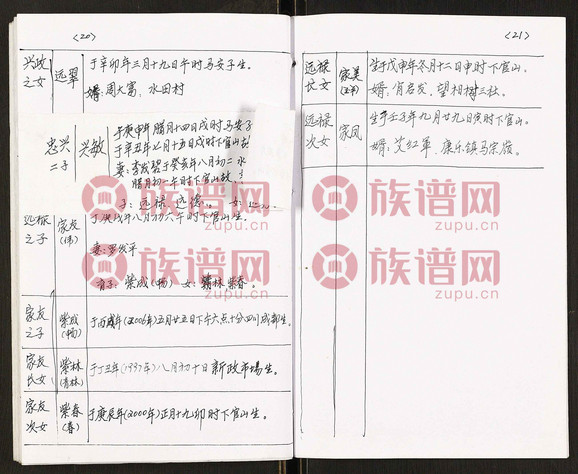 <20>
兴政之女
远翠
于辛卯年三月十九日午时马安子生。
婿:周大富,水田村
忠兴二子
兴敏
于庚申年腊月十四日戌时马安子
于辛丑年七月十五日戌时下官山
妻:李
于癸亥年八月初二
腊月初二午时下官山故
子:远禄
远禄之子
家友
(伟)
年八月初六午时下官山生。
妻:罗俊平
子:紫成(畅) 女:紫林,紫春。
家友之子
紫成
(畅)
于丙戌年(2006年)五月廿五日下午六点十分四川成都生。
家友长女
紫林
(青林)
于丁丑年(1997年)八月初十日新政市场生。
家友次女
紫春
(春)
于庚辰年(2000年)正月十九卯时下官山生。
<21>
远禄长女
家美
生于戊申年冬月十二日申时下官山。
婿,何名友,望相树三社。
远禄次女
家凤
生于壬子年九月廿九日寅时下官山。
婿:艾红军,康乐镇马宗岭。
族谱网
zupu.cn
族谱网
zupu.cn